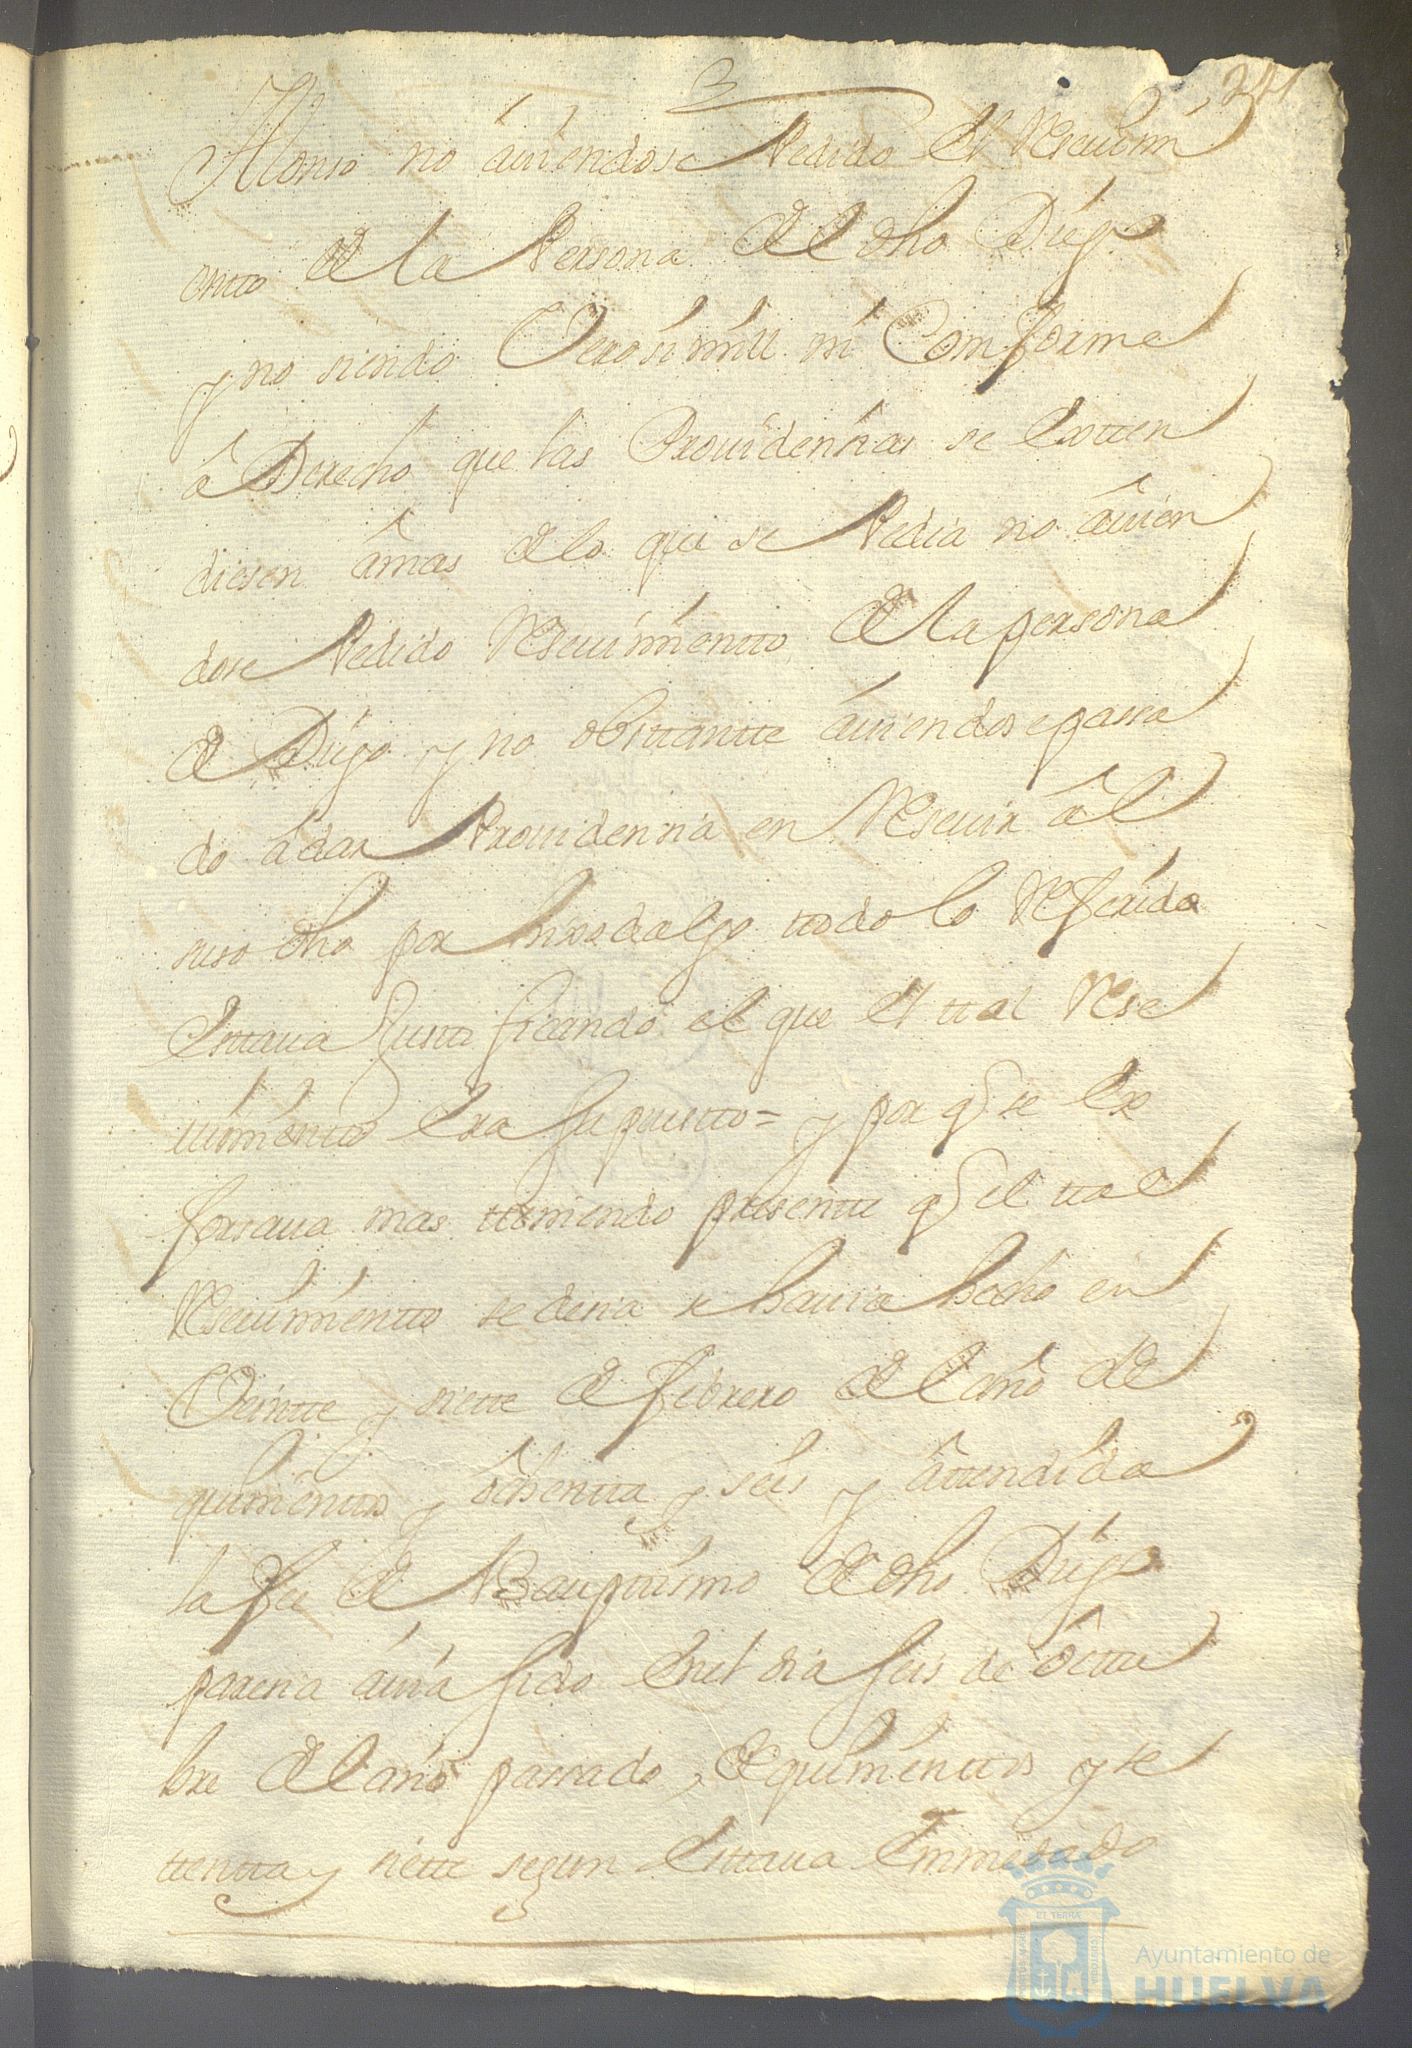 241
Alonso no auiendose Pedido el Resciuim
entto de la Persona del dho Diego
y no siendo Verosimill ni Comforme
â Derecho que las Prouidenzias se extten
diesen âmas de lo que se Pedia no âuien
dose Pedido Resciuimientto de la persona
de Diego y no obsttantte âuiendose passa
do âdar Prouidenzia en Resciuir âl
suso dho por hixodalgo ttodo lo Referido
esttaua Justtificando el que el ttal Resc
uimientto era supuestto = y por q̃ se ex
forsaua mas tteniendo presentte q̃ el ttal
Resciuimientto se dezia se hauia hecho en
Veintte y siette de febrero del año de
quinienttos y ôchentta y seis y âttendida
la fee de Bauptismo de dho Diego
parezia âuia sido en el dia seis de ôcttu
bre del año passado de quinienttos y se
ttentta y siette segun esttaua enmedado
Ayuntamiento de
HUELVA